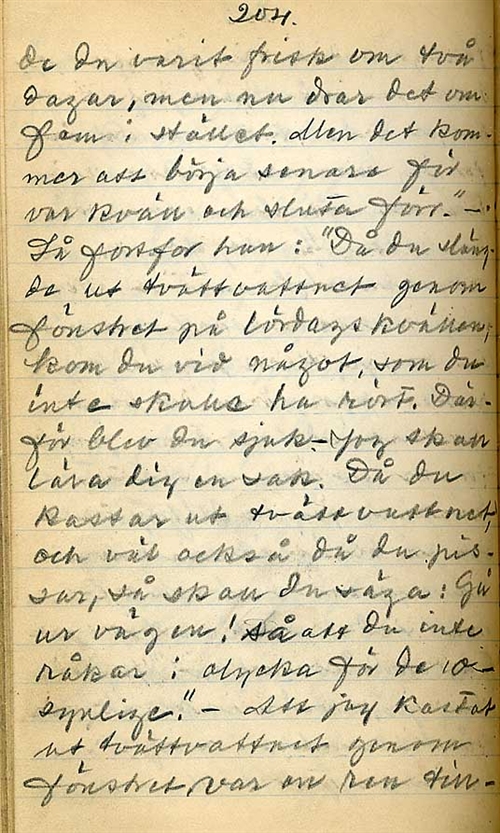 204.
de du varit frisk om två
dagar, men nu drar det om
fem i stället. Men det kom-
mer att börja senare för
var kväll och sluta förr." –
Så fortfor han: "Då du släng-
de ut tvättvattnet genom
fönstret på lördagskvällen,
kom du vid något, som du
inte skulle ha rört. Där-
för blev du sjuk. – Jag skall
lära dig en sak. Då du
kastar ut tvättvattnet,
och väl också då du pis-
sar, så skall du säga: Gå
ur vägen! så att du inte
råkar i olycka för de o-
synlige." – Att jag kastat
ut tvättvattnet genom
fönstret, var en ren till-